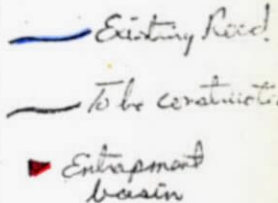 Existing Road
To be constructe
Entrapment
basin